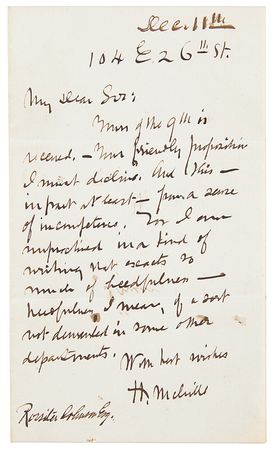 Dec. 11th
104 E 26th St.
My Dear Sir:
Yours of the 9th is
received. — Your friendly proposition
I must decline. And this —
in part at least — from a sense
of incompetence. For I am
unpractised in a kind of
writing that exacts so
much of heedfulness —
heedfulness, I mean, of a sort
not demanded in some other
departments.
With best wishes
H. Melville
Rossiter Johnson Esq.